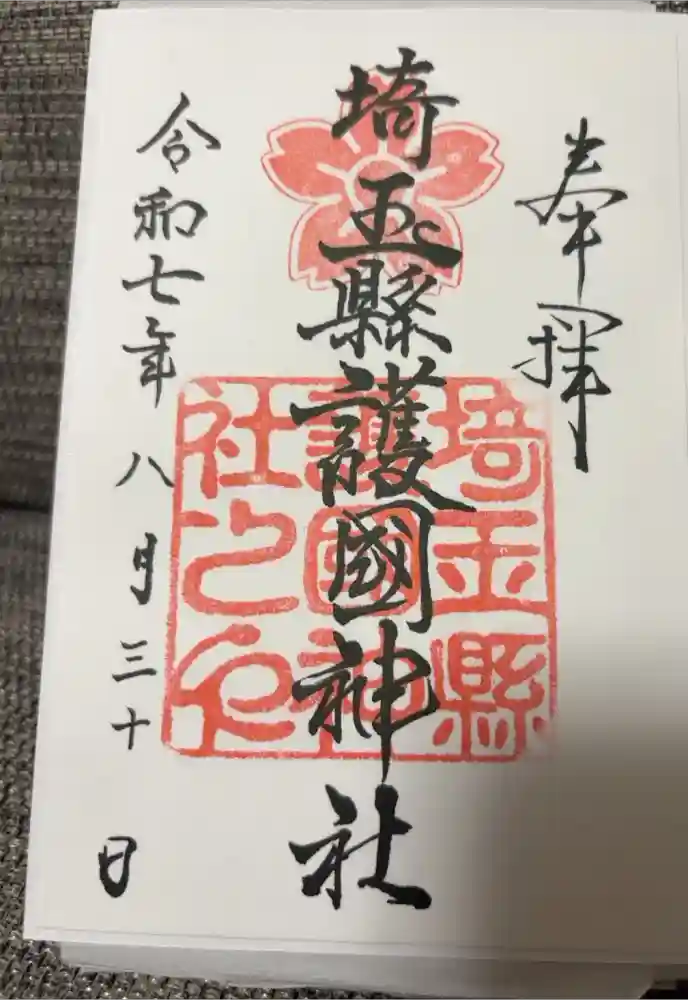 奉拜
埼玉縣護國神社
埼玉縣
護國神
社之印
令和七年八月三十日